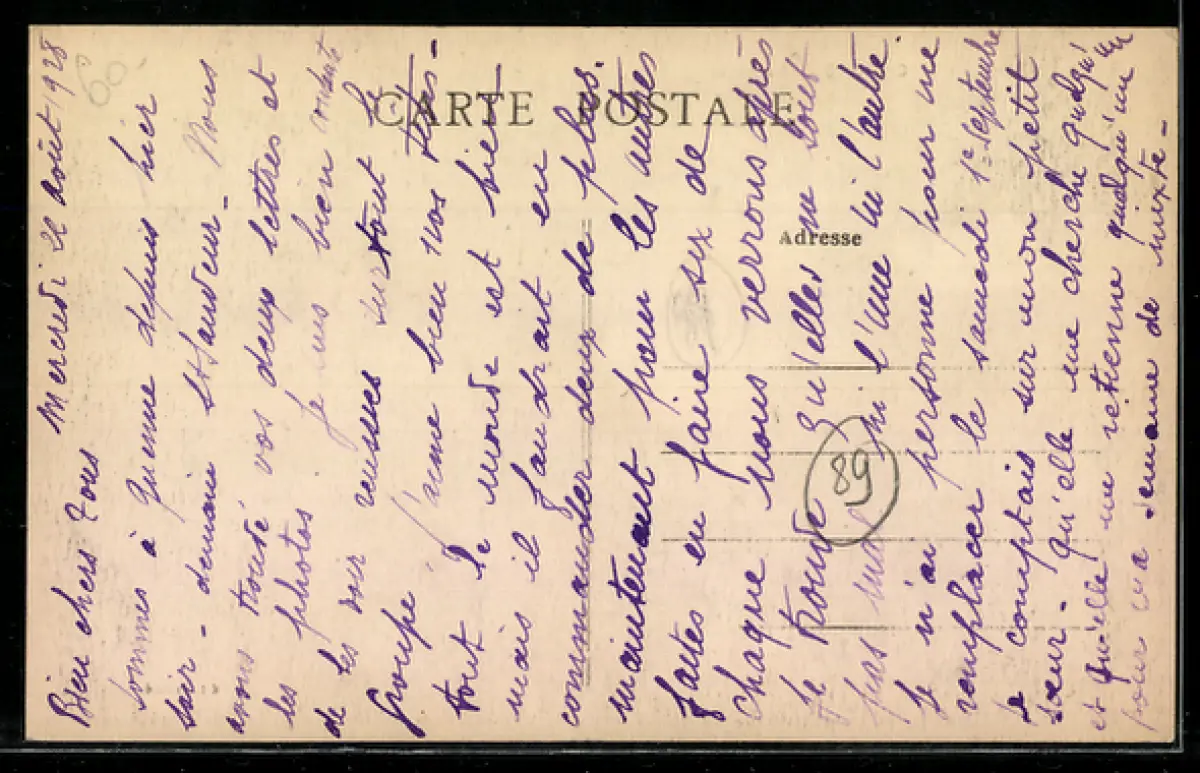 CARTE POSTALE
Adresse
89
60
Mercredi 22 août 1928
Bien chers Tous
sommes à depuis hier
soir - demain St Sauveur - Nous
avons trouvé vos deux lettres et
les photos je suis bien content
de les voir réussies surtout le
groupe j'aime bien vos
tout le monde est bien
mais il faudrait en
commander deux de plus.
maintenant pour les autres
faites en faire six de
chaque nous verrons après
Je trouve qu'elles ne sont
pas mal ni l'une ni l'autre.
Je n'ai personne pour me
remplacer le samedi 1er septembre
Je comptais sur mon petit
sœur - qu'elle me cherche quelqu'un
et qu'elle me retienne quelqu'un
pour la semaine de mixte -